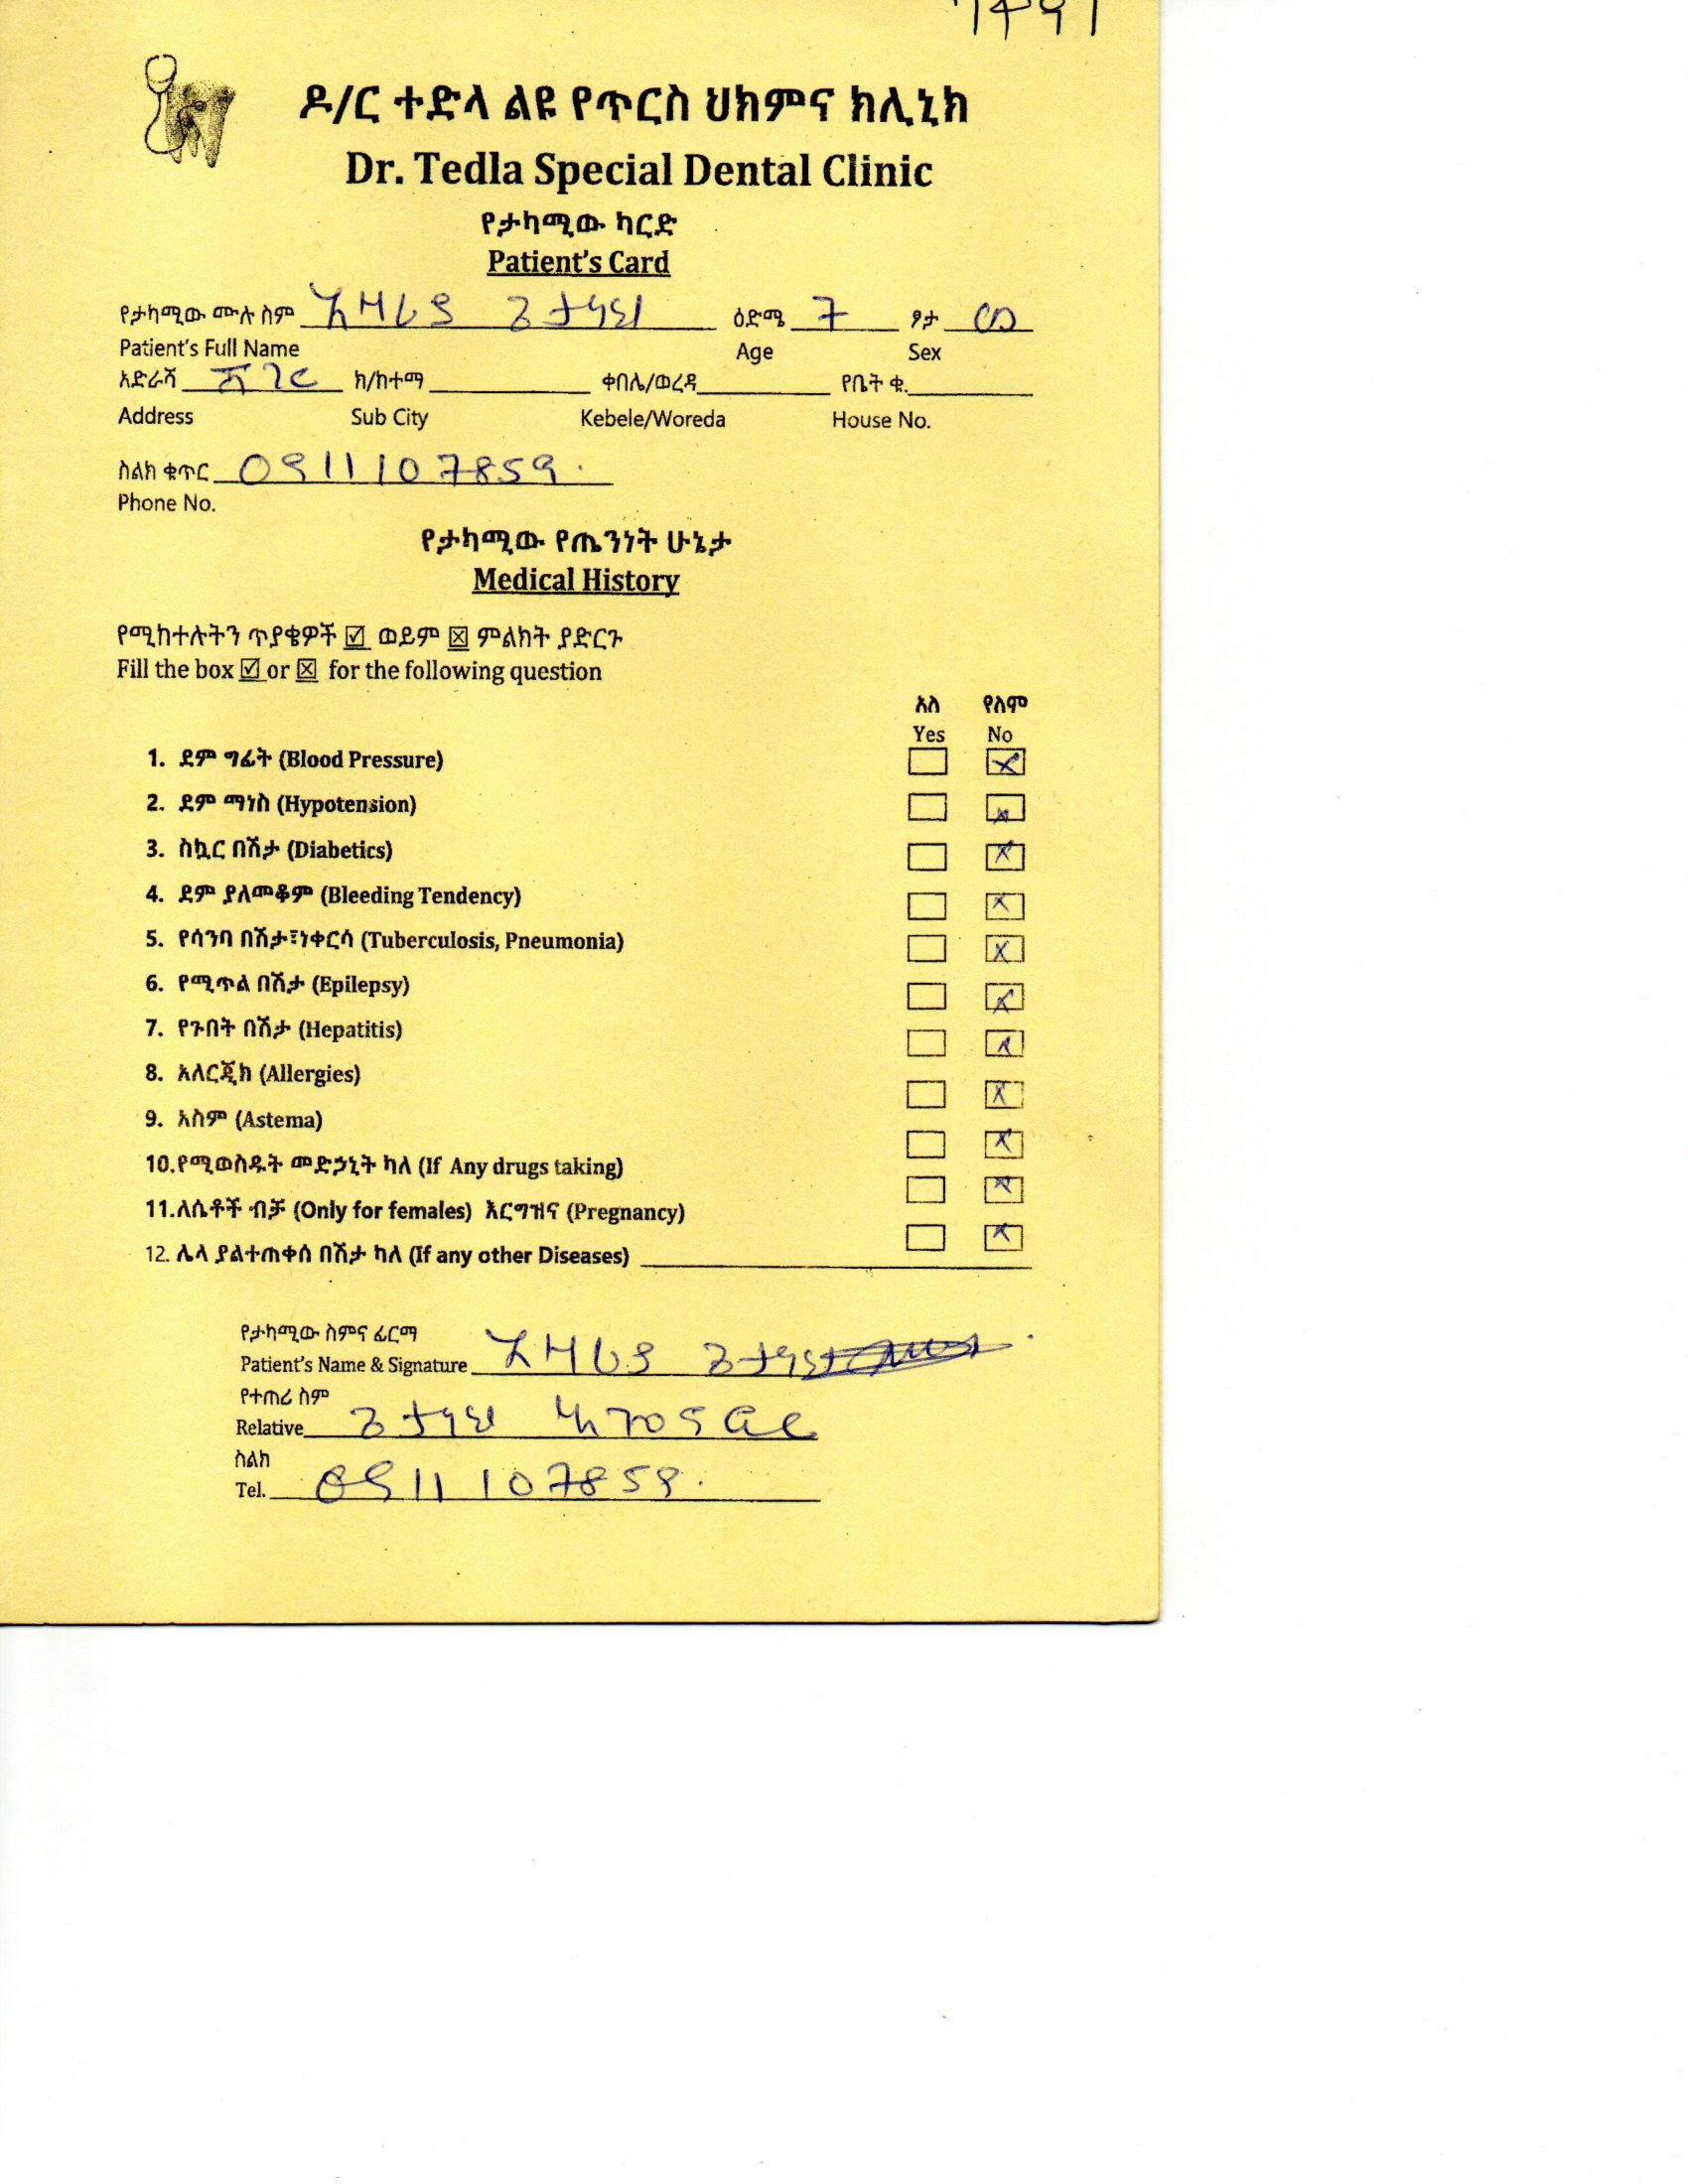 ዶ/ር ተድላ ልዩ የጥርስ ህክምና ክሊኒክ
Dr. Tedla Special Dental Clinic
የታካሚው ካርድ
Patient's Card
የታካሚው ሙሉ ስም ዕድሜ 7 ፆታ ወ
Patient's Full Name Age Sex
አድራሻ ሸገር ክ/ከተማ ቀበሌ/ወረዳ የቤት ቁ.
Address Sub City Kebele/Woreda House No.
ስልክ ቁጥር 0911107859.
Phone No.
የታካሚው የጤንነት ሁኔታ
Medical History
የሚከተሉትን ጥያቄዎች ☑ ወይም ☒ ምልክት ያድርጉ
Fill the box ☑ or ☒ for the following question
አለ የለም
Yes No
1. ደም ግፊት (Blood Pressure)
2. ደም ማነስ (Hypotension)
3. ስኳር በሽታ (Diabetics)
4. ደም ያለመቆም (Bleeding Tendency)
5. የሳንባ በሽታ፣ነቀርሳ (Tuberculosis, Pneumonia)
6. የሚጥል በሽታ (Epilepsy)
7. የጉበት በሽታ (Hepatitis)
8. አለርጂክ (Allergies)
9. አስም (Astema)
10.የሚወስዱት መድኃኒት ካለ (If Any drugs taking)
11.ለሴቶች ብቻ (Only for females) እርግዝና (Pregnancy)
12. ሌላ ያልተጠቀሰ በሽታ ካለ (If any other Diseases)
የታካሚው ስምና ፊርማ
Patient's Name & Signature
የተጠሪ ስም
Relative
ስልክ
Tel. 0911107859.